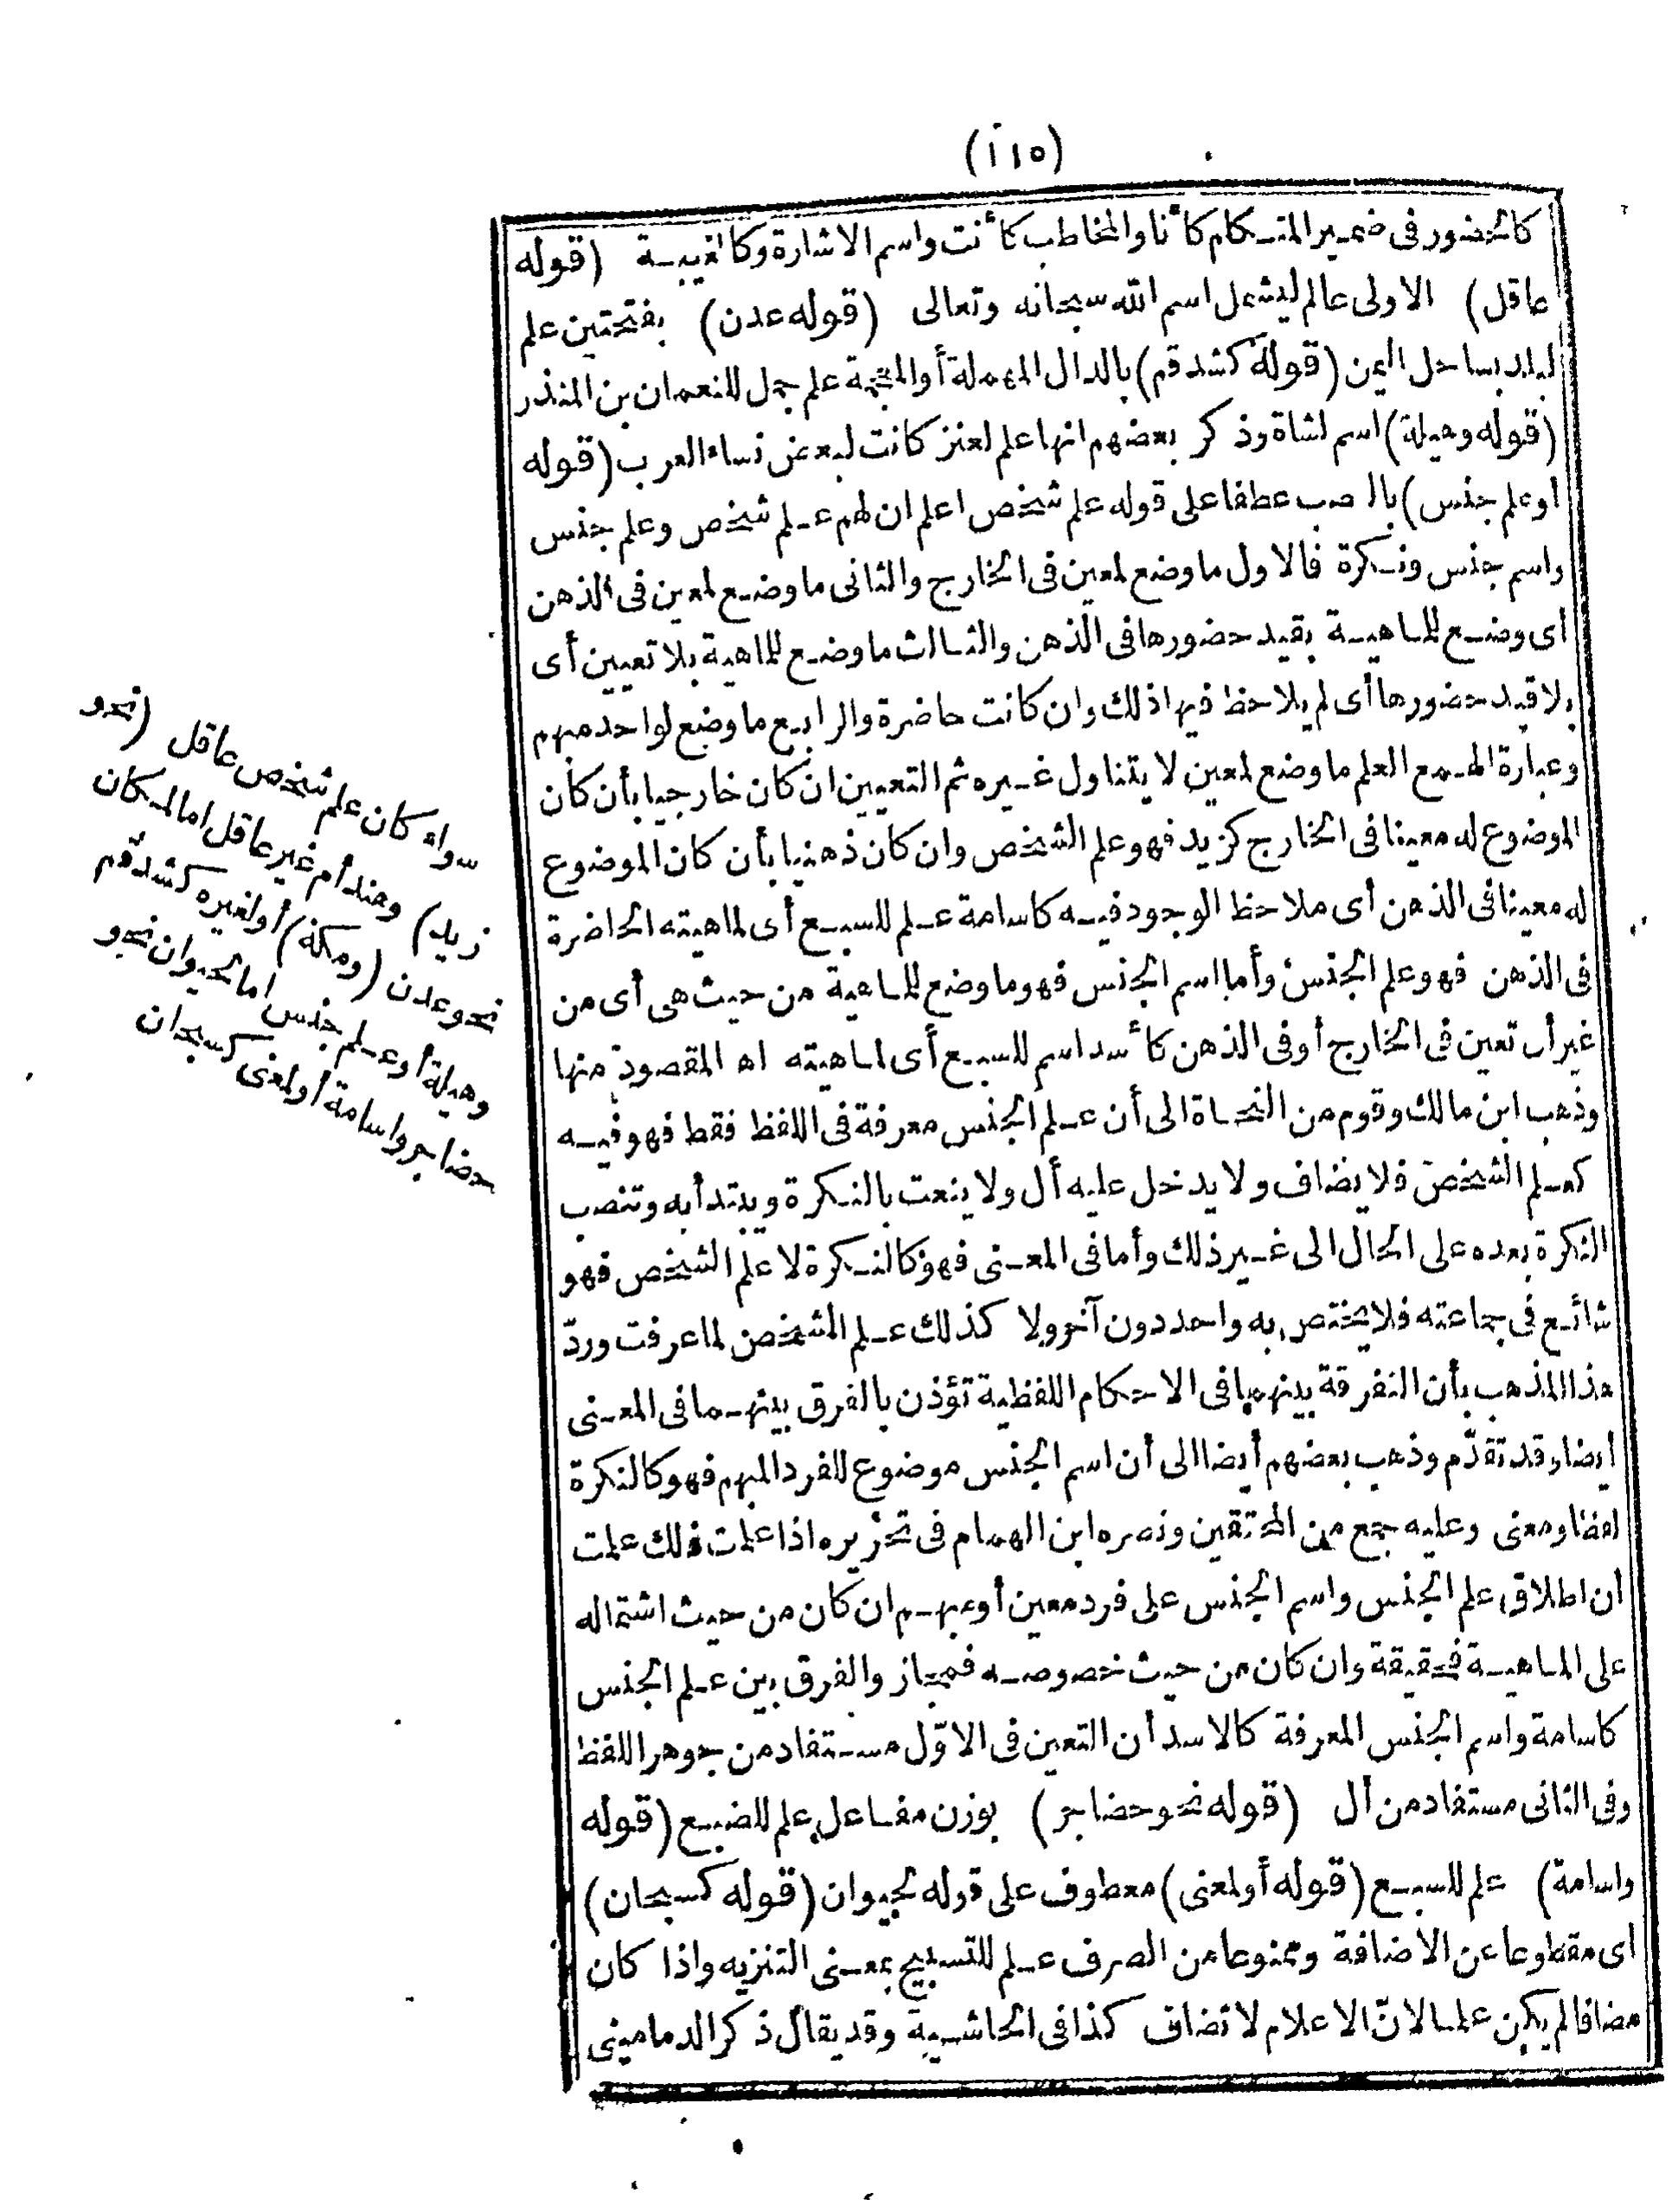 (١١٥)
كالحضور فى ضمير المتكلم كأنا والمخاطب كأنت واسم الاشارة وكالغيبة (قوله
عاقل) الاولى عالم ليشمل اسم الله سبحانه وتعالى (قوله عدن) بفتحتين علم
لبلد بساحل اليمن (قوله كشدقم) بالدال المهملة أو المعجمة علم جمل للنعمان بن المنذر
(قوله وهيلة) اسم لشاة وذكر بعضهم انها علم لعنز كانت لبعض نساء العرب (قوله
أو علم جنس) بالنصب عطفا على قوله علم شخص اعلم ان لهم علم شخص وعلم جنس
واسم جنس ونكرة فالاول ما وضع لمعين فى الخارج والثانى ما وضع لمعين فى الذهن
أى وضع للماهية بقيد حضورها فى الذهن والثالث ما وضع للماهية بلا تعيين أى
بلا قيد حضورها أى لم يلاحظ فيها ذلك وان كانت حاضرة والرابع ما وضع لواحد مبهم
وعبارة الهمع العلم ما وضع لمعين لا يتناول غيره ثم التعيين ان كان خارجيا بأن كان
الموضوع له معينا فى الخارج كزيد فهو علم الشخص وان كان ذهنيا بأن كان الموضوع
له معينا فى الذهن أى ملاحظ الوجود فيه كاسامة علم للسبع أى لماهيته الحاضرة
فى الذهن فهو علم الجنس وأما اسم الجنس فهو ما وضع للماهية من حيث هى أى من
غير أن تعين فى الخارج أو فى الذهن كأسد اسم للسبع أى لماهيته اه المقصود منها
وذهب ابن مالك وقوم من النحاة الى أن علم الجنس معرفة فى اللفظ فقط فهو فيه
كعلم الشخص فلا يضاف ولا يدخل عليه أل ولا ينعت بالنكرة ويبتدأ به وتنصب
النكرة بعده على الحال الى غير ذلك وأما فى المعنى فهو كالنكرة لا علم الشخص فهو
شائع فى جماعته فلا يختص به واحد دون آخر ولا كذلك علم الشخص لما عرفت وردّ
هذا المذهب بأن التفرقة بينهما فى الاحكام اللفظية تؤذن بالفرق بينهما فى المعنى
أيضا وقد تقدّم وذهب بعضهم أيضا الى أن اسم الجنس موضوع للفرد المبهم فهو كالنكرة
لفظا ومعنى وعليه جمع من المحققين ونصره ابن الهمام فى تحريره اذا علمت ذلك علمت
أن اطلاق علم الجنس واسم الجنس على فرد معين أو مبهم ان كان من حيث اشتماله
على الماهية فحقيقة وان كان من حيث خصوصه فمجاز والفرق بين علم الجنس
كاسامة واسم الجنس المعرفة كالاسد أن التعين فى الاوّل مستفاد من جوهر اللفظ
وفى الثانى مستفاد من أل (قوله نحو حضاجر) بوزن مفاعل علم للضبع (قوله
واسامة) علم للسبع (قوله أو لمعنى) معطوف على قوله لحيوان (قوله كسبحان)
اى مقطوعا عن الاضافة وممنوعا من الصرف علم للتسبيح بمعنى التنزيه واذا كان
مضافا لم يكن علما لانّ الاعلام لا تضاف كذا فى الحاشية وقد يقال ذكر الدمامينى
سواء كان علم شخص عاقل (نحو
زيد) وهند أم غير عاقل اما لمكان
نحو عدن (ومكة) أو لغيره كشدقم
وهيلة أو علم جنس اما لحيوان نحو
حضاجر واسامة أو لمعنى كسبحان